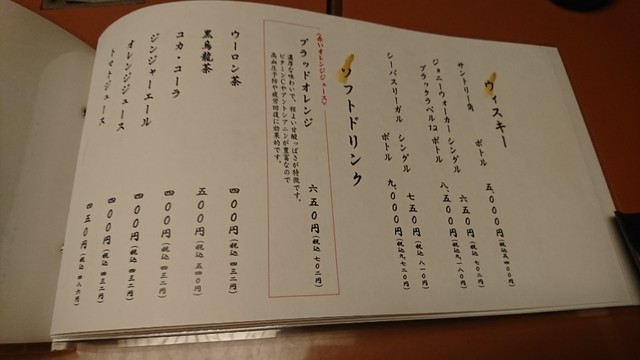 ウィスキー
サントリー角 ボトル 五、〇〇〇円(税込五四〇〇円)
ジョニーウォーカー シングル 六五〇円(税込七〇二円)
ブラックラベル12 ボトル 八、五〇〇円(税込九、一八〇円)
シーバスリーガル シングル 七五〇円(税込八一〇円)
ボトル 九、〇〇〇円(税込九、七二〇円)
ソフトドリンク
赤いオレンジジュース
ブラッドオレンジ 六五〇円(税込七〇二円)
濃厚な味わいで、程よい甘酸っぱさが特徴です。
ビタミンCやアントシアニンが豊富なので
高血圧予防や疲労回復に効果的です。
ウーロン茶 四〇〇円(税込四三二円)
黒烏龍茶 五〇〇円(税込五四〇円)
コカ・コーラ 四〇〇円(税込四三二円)
ジンジャーエール 四〇〇円(税込四三二円)
オレンジジュース 四〇〇円(税込四三二円)
トマトジュース 四五〇円(税込四八六円)